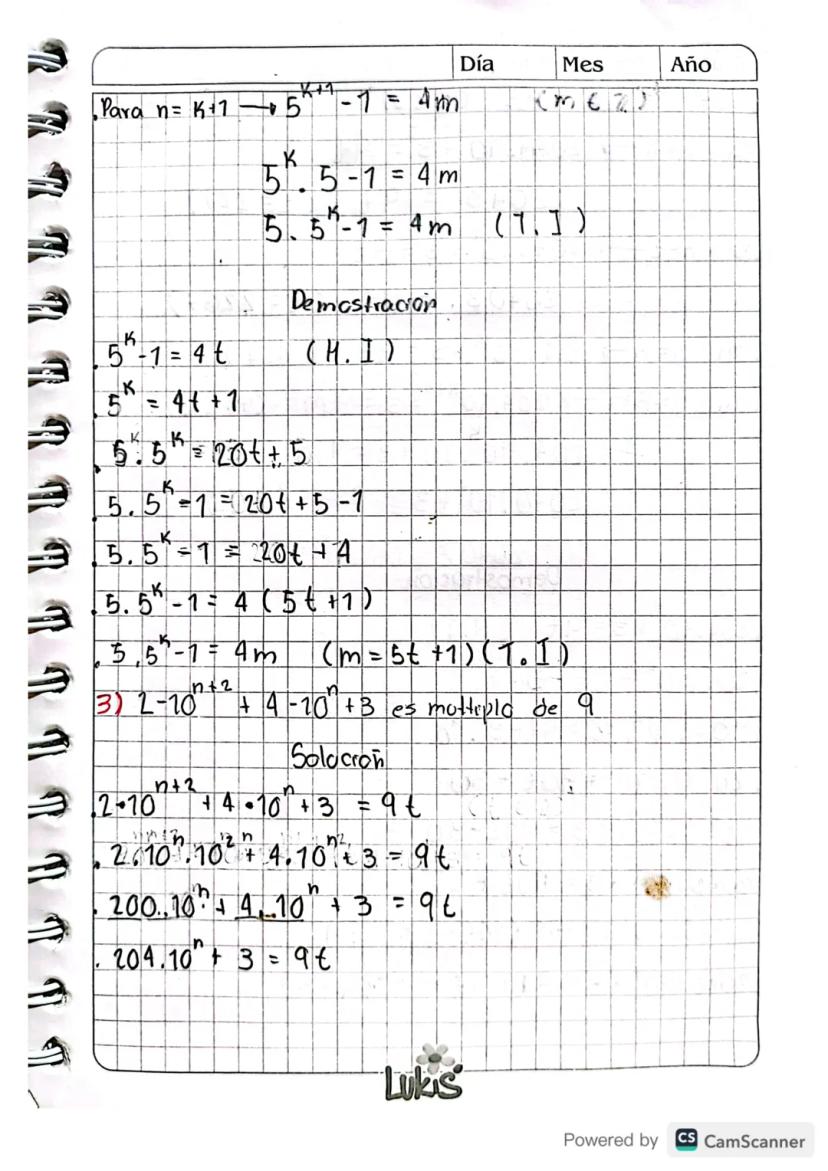 Día Mes Año
.Para n = k+1 → 5^{k+1} - 1 = 4m (m ∈ Z)
5^k . 5 - 1 = 4m
5. 5^k - 1 = 4m (T. I)
Demostración
. 5^k - 1 = 4t (H. I)
. 5^k = 4t + 1
. 5 . 5^k = 20t + 5
. 5. 5^k - 1 = 20t + 5 - 1
. 5. 5^k - 1 = 20t + 4
. 5. 5^k - 1 = 4 (5t + 1)
. 5. 5^k - 1 = 4m (m = 5t + 1) (T. I)
3) 2-10^{n+2} + 4-10^n + 3 es multiplo de 9
Solución
. 2•10^{n+2} + 4•10^n + 3 = 9t
. 2.10^n.10^2 + 4.10^n + 3 = 9t
. 200.10^n + 4.10^n + 3 = 9t
. 204.10^n + 3 = 9t
Lukis
Powered by CS CamScanner